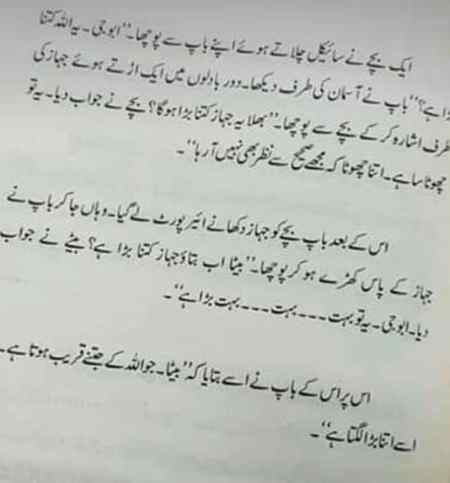 ایک بچے نے سائیکل چلاتے ہوئے اپنے باپ سے پوچھا۔ "ابو جی۔ یہ اللہ کتنا
بڑا ہے؟" باپ نے آسمان کی طرف دیکھا۔ دور بادلوں میں ایک اڑتے ہوئے جہاز کی
طرف اشارہ کر کے بچے سے پوچھا۔ "بھلا یہ جہاز کتنا بڑا ہو گا؟ بچے نے جواب دیا۔ یہ تو
چھوٹا سا ہے۔ اتنا چھوٹا کہ مجھے صحیح سے نظر بھی نہیں آ رہا"۔
اس کے بعد باپ بچے کو جہاز دکھانے ائیر پورٹ لے گیا۔ وہاں جا کر باپ نے
جہاز کے پاس کھڑے ہو کر پوچھا۔ "بیٹا اب بتاؤ جہاز کتنا بڑا ہے؟ بیٹے نے جواب
دیا۔ ابو جی۔ یہ تو بہت ۔۔۔ بہت ۔۔۔ بہت بڑا ہے"۔
اس پر اس کے باپ نے اسے بتایا کہ "بیٹا۔ جو اللہ کے جتنے قریب ہوتا ہے۔
اسے اتنا بڑا لگتا ہے"۔